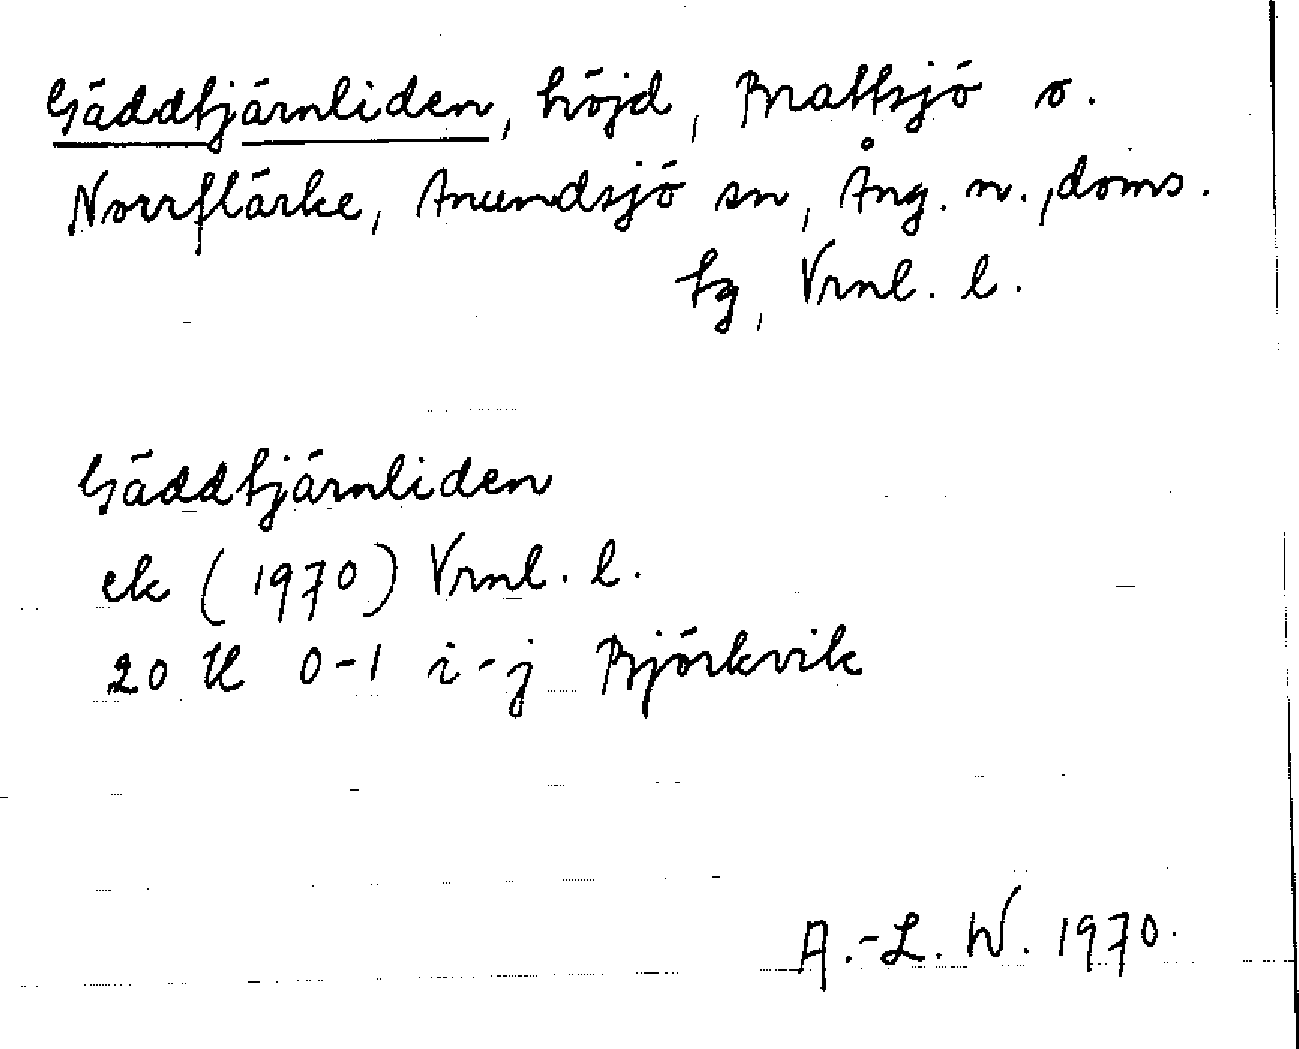 Gäddtjärnliden, höjd, Brattsjö o.
Norrflärke, Anundsjö sn, Ång. n., doms.
fg, Vrml. l.
Gäddtjärnliden
ek (1970) Vrml. l.
20 H 0-1 i-j Björkvik
A.-L. W. 1970.